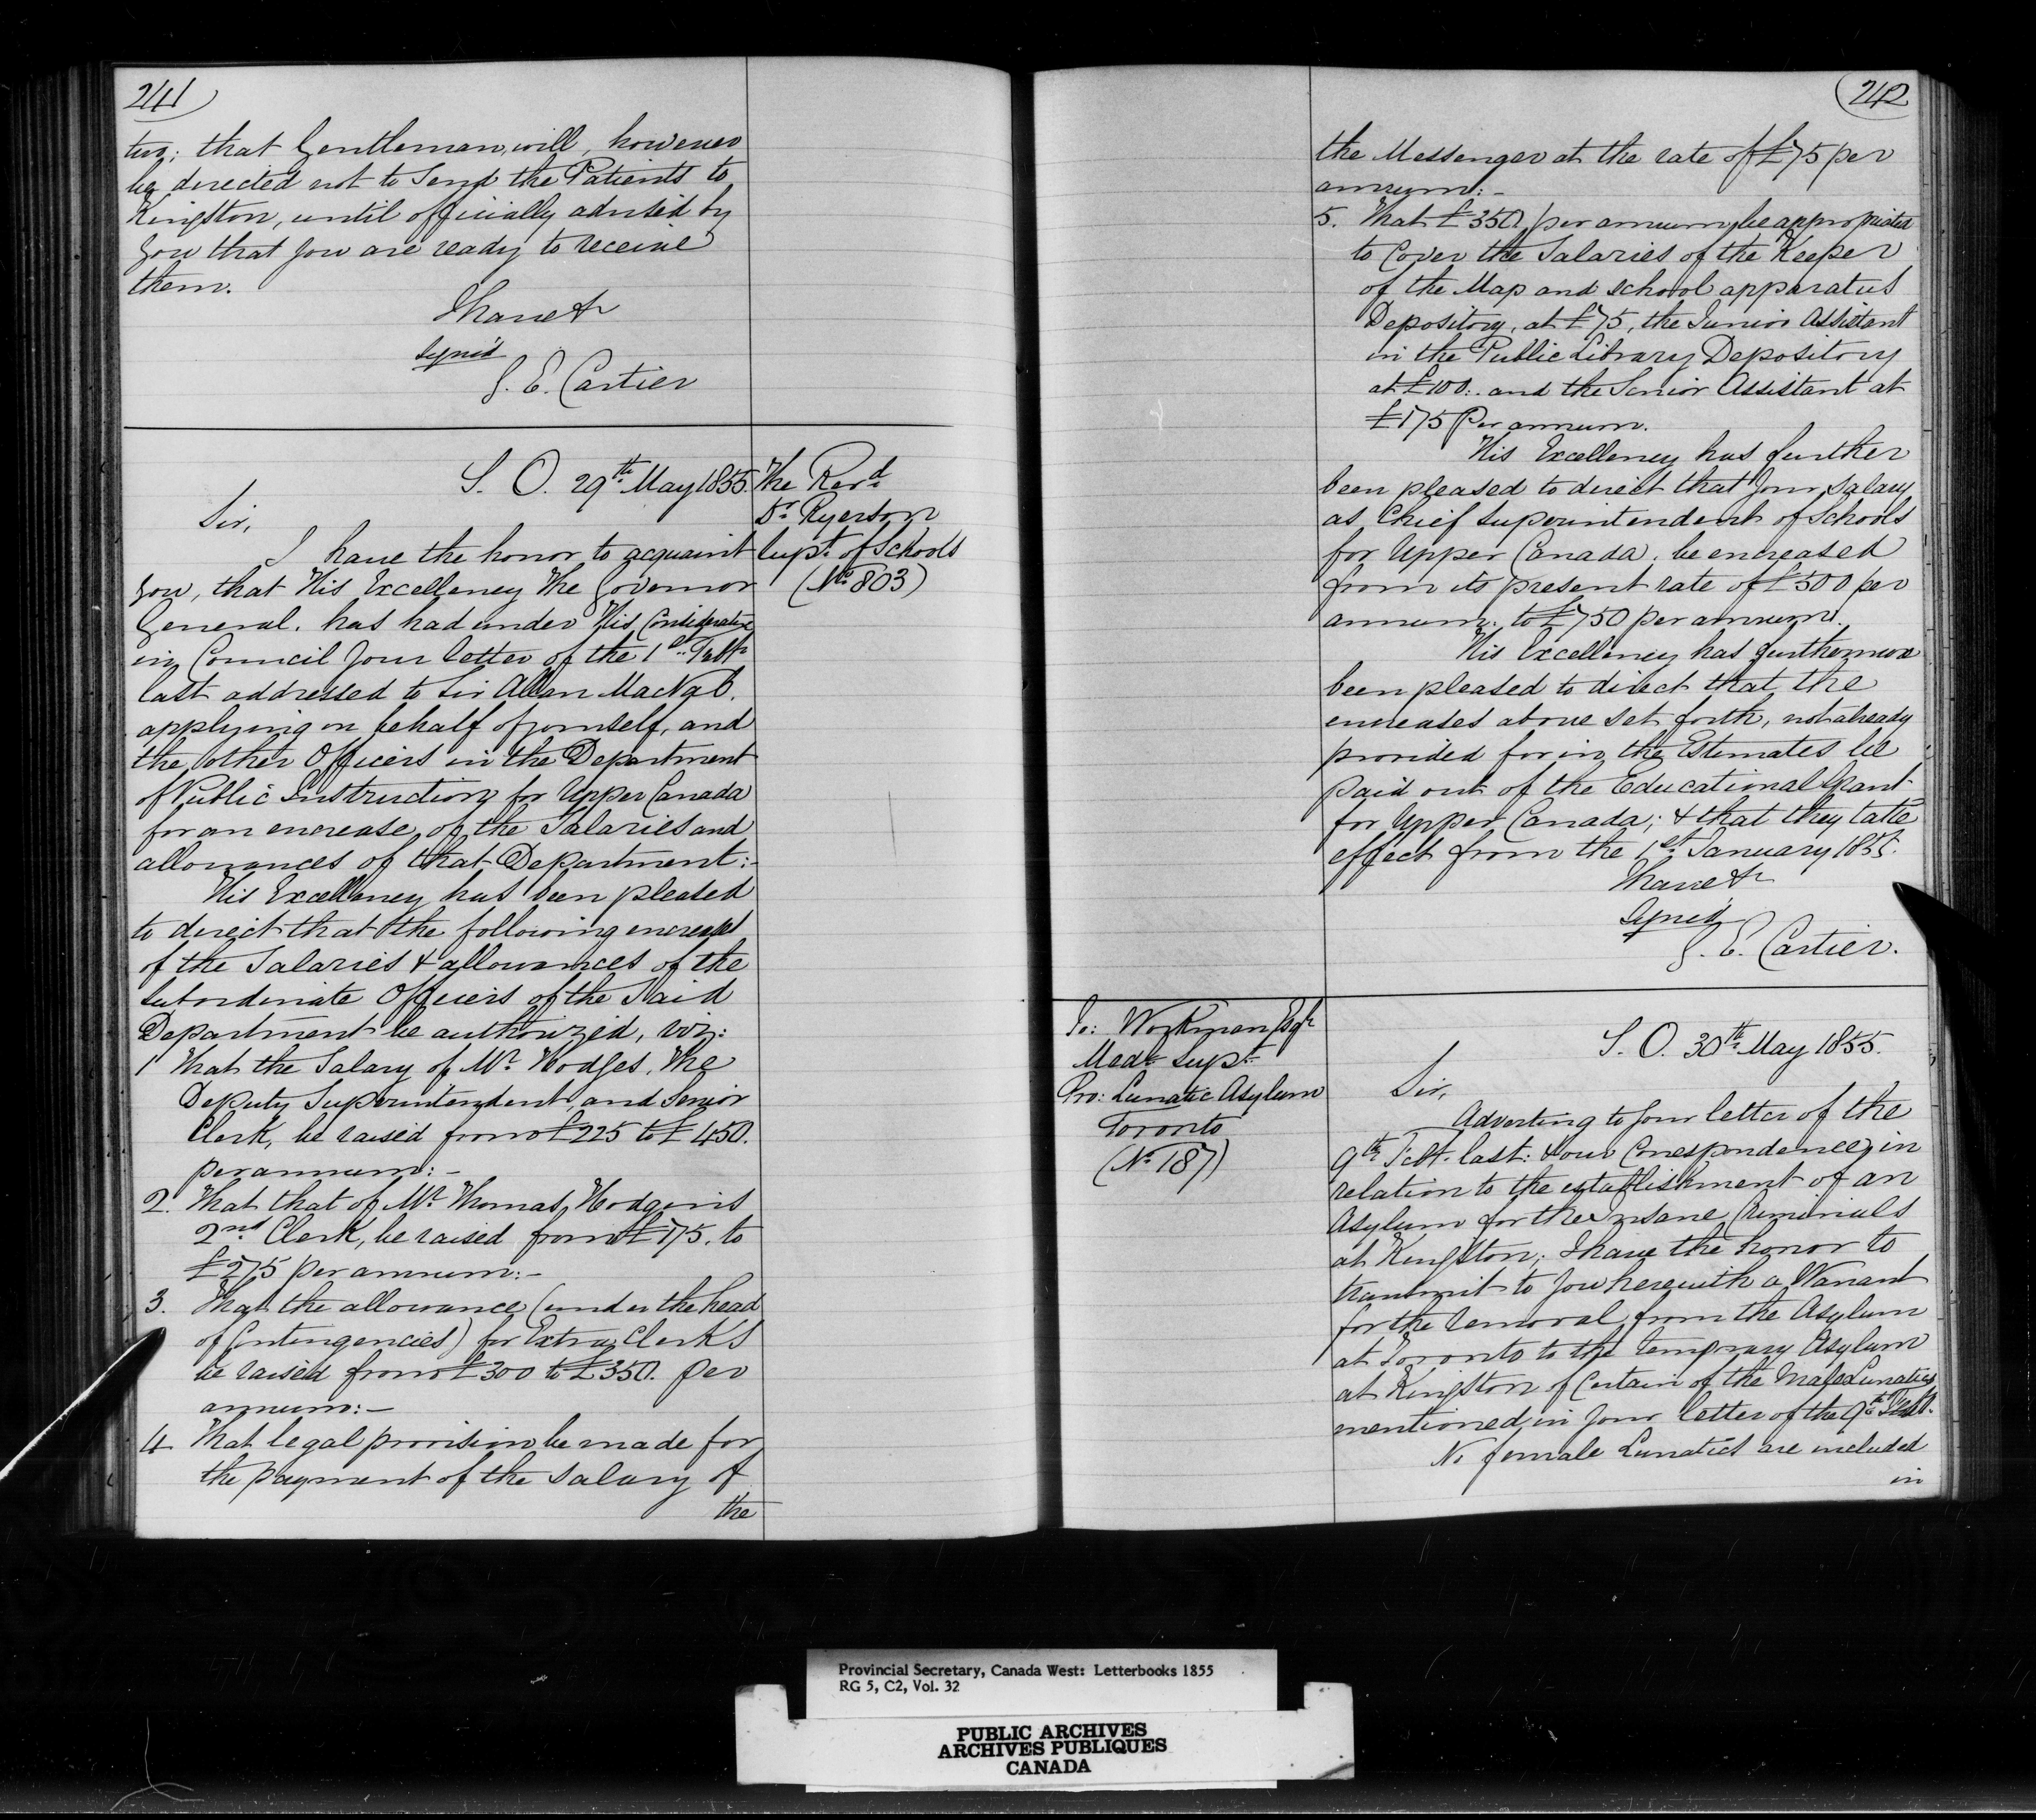 241
two; that Gentleman, will, however
be directed not to Send the Patients to
Kingston, until officially advised by
you that you are ready to receive
them.
I have &c
Signed
G. E. Cartier
S. O. 29th May 1855.
The Revd
Dr. Ryerson
Supt. of Schools
(No 803)
Sir,
I have the honor to acquaint
you, that His Excellency The Governor
General. has had under His Consideration
in Council your letter of the 1st Feby
last addressed to Sir Allan MacNab.
applying on behalf of yourself, and
the other Officers in the Department
of Public Instruction for Upper Canada
for an encrease of the Salaries and
allowances of that Department:-
His Excellency has been pleased
to direct that the following encreases
of the Salaries & allowances of the
Subordinate Officers of the Said
Department be authorized, viz:
1 That the Salary of Mr. Hodges, The
Deputy Superintendent, and Senior
Clerk, be raised from £225 to £450.
per annum:-
2. That that of Mr. Thomas Hodgins
2nd Clerk, be raised from £175. to
£275 per annum:-
3. That the allowance (under the head
of Contingencies) for Extra Clerks
be raised from £300 to £350. per
annum:-
4 That legal provision be made for
the payment of the Salary of
the
242
the Messenger at the rate of £75 per
annum:-
5. That £350 per annum be appropriated
to Cover the Salaries of the Keeper
of the Map and school apparatus
Depository, at £75, the Junior Assistant
in the Public Library Depository
at £100:. and the Senior Assistant at
£175 Per annum.
His Excellency has further
been pleased to direct that your Salary
as Chief Superintendent of Schools
for Upper Canada. be encreased
from its present rate of £500 per
annum. to £750 per annum.
His Excellency has furthermore
been pleased to direct that the
encreases above set forth, not already
provided for in the Estimates be
paid out of the Educational Grant
for Upper Canada; & that they take
effect from the 1st January 1855.
I have &c
Signed
G. E. Cartier.
Jo: Workman Esqr
Medl Supt
Pro: Lunatic Asylum
Toronto
(No 187)
S. O. 30th May 1855.
Sir,
Adverting to your letter of the
9th Feby. last: & our Correspondence, in
relation to the establishment of an
Asylum for the Insane Criminals
at Kingston; I have the honor to
transmit to you herewith a Warrant
for the removal from the Asylum
at Toronto to the temporary Asylum
at Kingston of Certain of the Male Lunatics
mentioned in your letter of the 9th Feby.
No female Lunatics are included
in
Provincial Secretary, Canada West: Letterbooks 1855
RG 5, C2, Vol. 32
PUBLIC ARCHIVES
ARCHIVES PUBLIQUES
CANADA